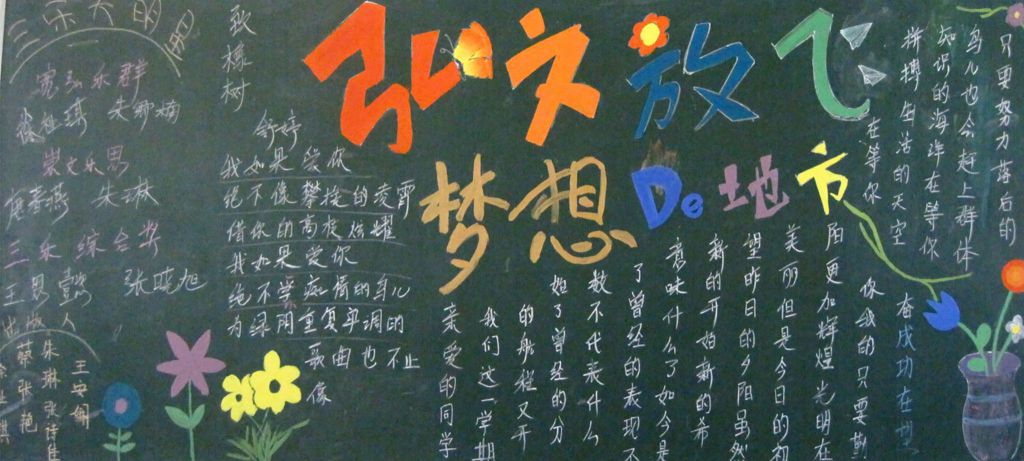 弘文放飞
梦想De地方
三乐大明星
宽弘乐群
朱卿楠
崇文乐思
春燕 朱琳
三乐综合奖
王男懿 张旭
出版人
王安
朱琳 张诗佳
张艳
致橡树
舒婷
我如果爱你
绝不像攀援的凌霄
借你的高枝炫耀
我如果爱你
绝不学痴情的鸟儿
为绿阴重复单调的
歌曲也不止
像
亲爱的同学
我们这一学期
的航程又开
始了曾经的分
数不代表什么
了曾经的表现不
意味什么了如今是
新的开始新的希
望昨日的夕阳虽然
美丽但是今日的初
阳更加辉煌光明在
你我的只要勤
奋成功在
在等你
拼搏的天空
知识的海洋在等你
鸟儿也会赶上群体
只要努力落后的